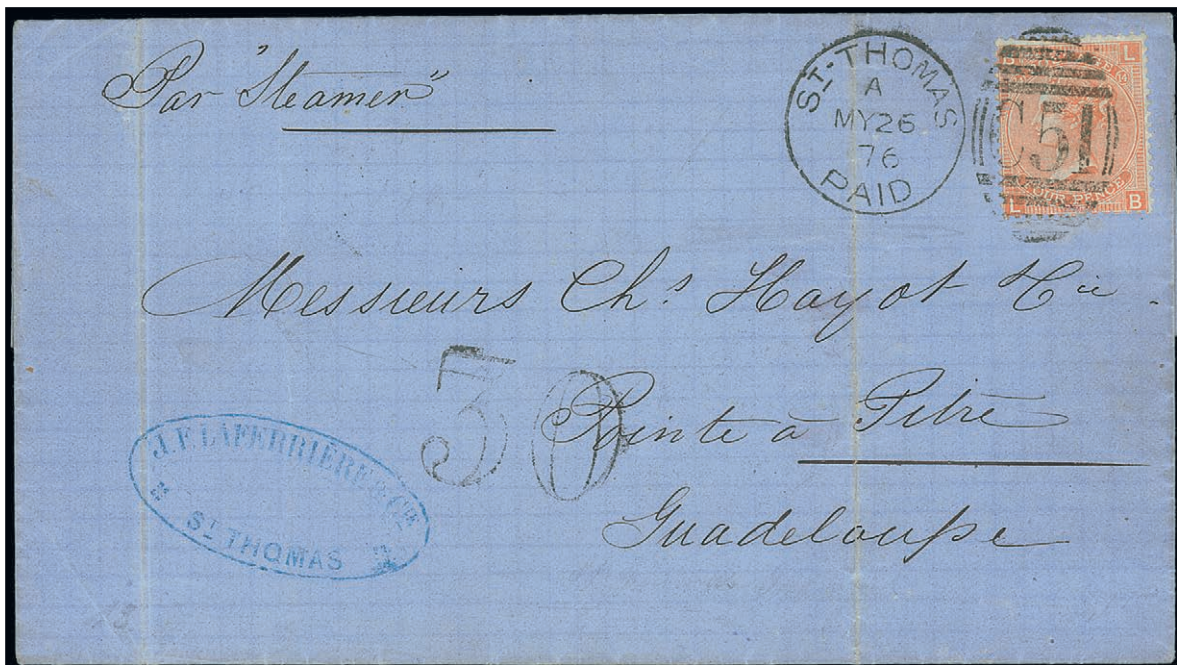 Par "Steamer"
ST-THOMAS
A
MY26
76
PAID
L
14
C51
FOUR PENCE
L B
Messieurs Ch.s Hayot & Cie.
30
Pointe à Pitre
Guadeloupe
J. F. LAFERRIÈRE & CIE
ST THOMAS